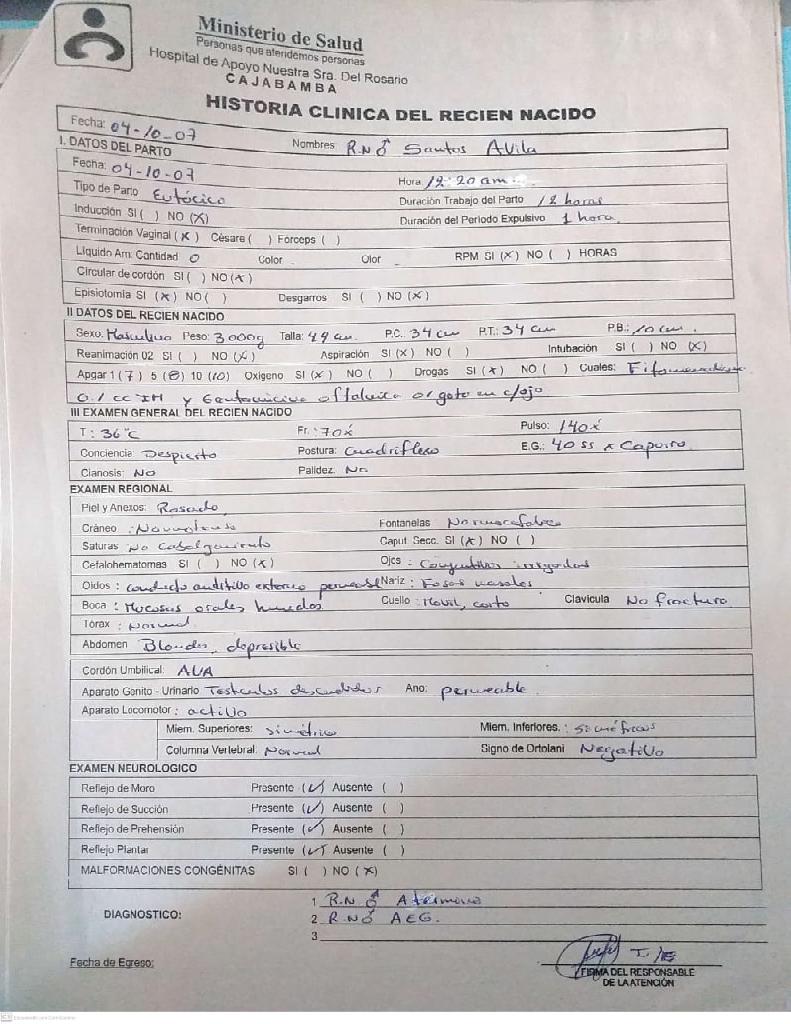 Ministerio de Salud
Personas que atendemos personas
Hospital de Apoyo Nuestra Sra. Del Rosario
CAJABAMBA
HISTORIA CLINICA DEL RECIEN NACIDO
Fecha: 04-10-07 Nombres: R.N ♂ Santos Avila
I. DATOS DEL PARTO
Fecha: 04-10-07 Hora 12:20 am
Tipo de Parto Eutócico Duración Trabajo del Parto 12 horas
Inducción SI ( ) NO (X) Duración del Periodo Expulsivo 1 hora.
Terminación Vaginal (X) Césare ( ) Forceps ( )
Liquido Am. Cantidad 0 Color - Olor - RPM SI (X) NO ( ) HORAS
Circular de cordón SI ( ) NO (X)
Episiotomia SI (X) NO ( ) Desgarros SI ( ) NO (X)
II DATOS DEL RECIEN NACIDO
Sexo: Masculino Peso: 3000g Talla: 49 cm. P.C.: 34 cm P.T.: 34 cm P.B.: 10 cm.
Reanimación 02 SI ( ) NO (X) Aspiración SI (X) NO ( ) Intubación SI ( ) NO (X)
Apgar 1 (7) 5 (8) 10 (10) Oxigeno SI (X) NO ( ) Drogas SI (X) NO ( ) Cuales: Fitomenadiona
0.1 cc IM y Gentamicina oftalmica 01 gota en c/ojo
III EXAMEN GENERAL DEL RECIEN NACIDO
T: 36°C Fr.: 70x' Pulso: 140x'
Conciencia Despierto Postura: Cuadriflexo E.G.: 40 ss x Capurro
Cianosis: No Palidez: No
EXAMEN REGIONAL
Piel y Anexos: Rosado
Cráneo : Fontanelas
Saturas No cabalgamiento Caput Secc. SI (X) NO ( )
Cefalohematomas SI ( ) NO (X) Ojos : Conjuntivas irrigadas
Oidos : conducto auditivo externo permeable Nariz : Fosas nasales
Boca : Mucosas orales humedas Cuello : Movil, corto Clavicula No fractura
Torax : Normal
Abdomen Blando, depresible
Cordón Umbilical: AVA
Aparato Genito - Urinario Testiculos descendidos Ano: permeable.
Aparato Locomotor : activo
Miem. Superiores: simétrico Miem. Inferiores. : simétricos
Columna Vertebral: Normal Signo de Ortolani Negativo
EXAMEN NEUROLOGICO
Reflejo de Moro Presente (✓) Ausente ( )
Reflejo de Succión Presente (✓) Ausente ( )
Reflejo de Prehensión Presente (✓) Ausente ( )
Reflejo Plantar Presente (✓) Ausente ( )
MALFORMACIONES CONGÉNITAS SI ( ) NO (X)
DIAGNOSTICO:
1 R.N ♂ A termino
2 R.N ♂ AEG.
3
Fecha de Egreso:
FIRMA DEL RESPONSABLE
DE LA ATENCIÓN